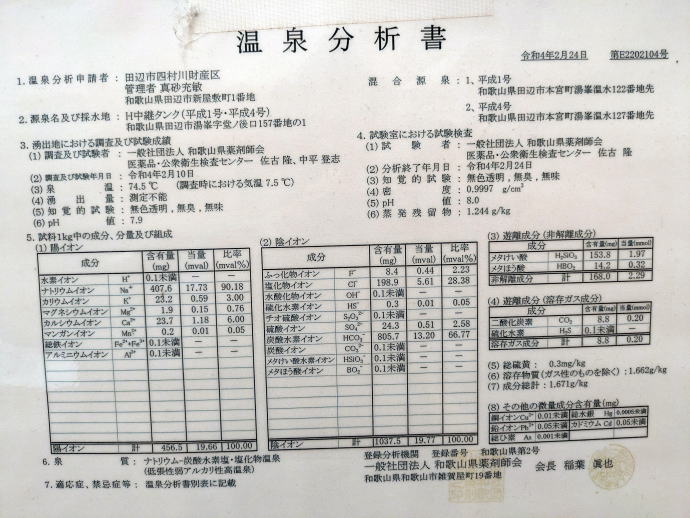 温泉分析書
令和4年2月24日 第E2202104号
1. 温泉分析申請者 : 田辺市四村川財産区
管理者 真砂充敏
和歌山県田辺市新屋敷町1番地
混合源泉 : 1、平成1号
和歌山県田辺市本宮町湯峯温水122番地先
2、平成4号
和歌山県田辺市本宮町湯峯温水127番地先
2. 源泉名及び採水地 : H中継タンク(平成1号・平成4号)
田辺市湯峯字堂ノ後ロ157番地の1
3. 湧出地における調査及び試験成績
(1) 調査及び試験者 : 一般社団法人 和歌山県薬剤師会
医薬品・公衆衛生検査センター 佐古 隆, 中平 登志
(2) 調査及び試験年月日 : 令和4年2月10日
(3) 泉温 : 74.5 ℃ (調査時における気温 7.5 ℃)
(4) 湧出量 : 測定不能
(5) 知覚的試験 : 無色透明, 無臭, 無味
(6) pH値 : 7.9
4. 試験室における試験検査
(1) 試験者 : 一般社団法人 和歌山県薬剤師会
医薬品・公衆衛生検査センター 佐古 隆
(2) 分析終了年月日 : 令和4年2月24日
(3) 知覚的試験 : 無色透明, 無臭, 無味
(4) 密度 : 0.9997 g/cm³
(5) pH値 : 8.0
(6) 蒸発残留物 : 1.244 g/kg
5. 試料1kg中の成分、分量及び組成
(1) 陽イオン
成分 含有量(mg) 当量(mval) 比率(mval%)
水素イオン H⁺ 0.1未満 － －
ナトリウムイオン Na⁺ 407.6 17.73 90.18
カリウムイオン K⁺ 23.2 0.59 3.00
マグネシウムイオン Mg²⁺ 1.9 0.15 0.76
カルシウムイオン Ca²⁺ 23.7 1.18 6.00
マンガンイオン Mn²⁺ 0.2 0.01 0.05
総鉄イオン Fe²⁺+Fe³⁺ 0.1未満 － －
アルミニウムイオン Al³⁺ 0.1未満 － －
陽イオン 計 456.5 19.66 100.00
(2) 陰イオン
成分 含有量(mg) 当量(mval) 比率(mval%)
ふっ化物イオン F⁻ 8.4 0.44 2.23
塩化物イオン Cl⁻ 198.9 5.61 28.38
水酸化物イオン OH⁻ 0.1未満 － －
硫化水素イオン HS⁻ 0.3 0.01 0.05
チオ硫酸イオン S₂O₃²⁻ 0.1未満 － －
硫酸イオン SO₄²⁻ 24.3 0.51 2.58
炭酸水素イオン HCO₃⁻ 805.7 13.20 66.77
炭酸イオン CO₃²⁻ 0.1未満 － －
メタけい酸水素イオン HSiO₃⁻ 0.1未満 － －
メタほう酸イオン BO₂⁻ 0.1未満 － －
陰イオン 計 1037.5 19.77 100.00
(3) 遊離成分(非解離成分)
成分 含有量(mg) 当量(mmol)
メタけい酸 H₂SiO₃ 153.8 1.97
メタほう酸 HBO₂ 14.2 0.32
非解離成分 計 168.0 2.29
(4) 遊離成分(溶存ガス成分)
成分 含有量(mg) 当量(mmol)
二酸化炭素 CO₂ 8.8 0.20
硫化水素 H₂S 0.1未満 －
溶存ガス成分 計 8.8 0.20
(5) 総硫黄 : 0.3mg/kg
(6) 溶存物質(ガス性のものを除く) : 1.662g/kg
(7) 成分総計 : 1.671g/kg
(8) その他の微量成分含有量(mg)
銅イオンCu²⁺ 0.01未満 総水銀 Hg 0.0005未満
鉛イオンPb²⁺ 0.05未満 カドミウム Cd 0.05未満
総ひ素 As 0.001未満
6. 泉質 : ナトリウム－炭酸水素塩・塩化物温泉
(低張性弱アルカリ性高温泉)
7. 適応症、禁忌症等 : 温泉分析書別表に記載
登録分析機関 登録番号 和歌山県第2号
一般社団法人 和歌山県薬剤師会 会長 稲葉 眞也
和歌山県和歌山市雑賀屋町19番地